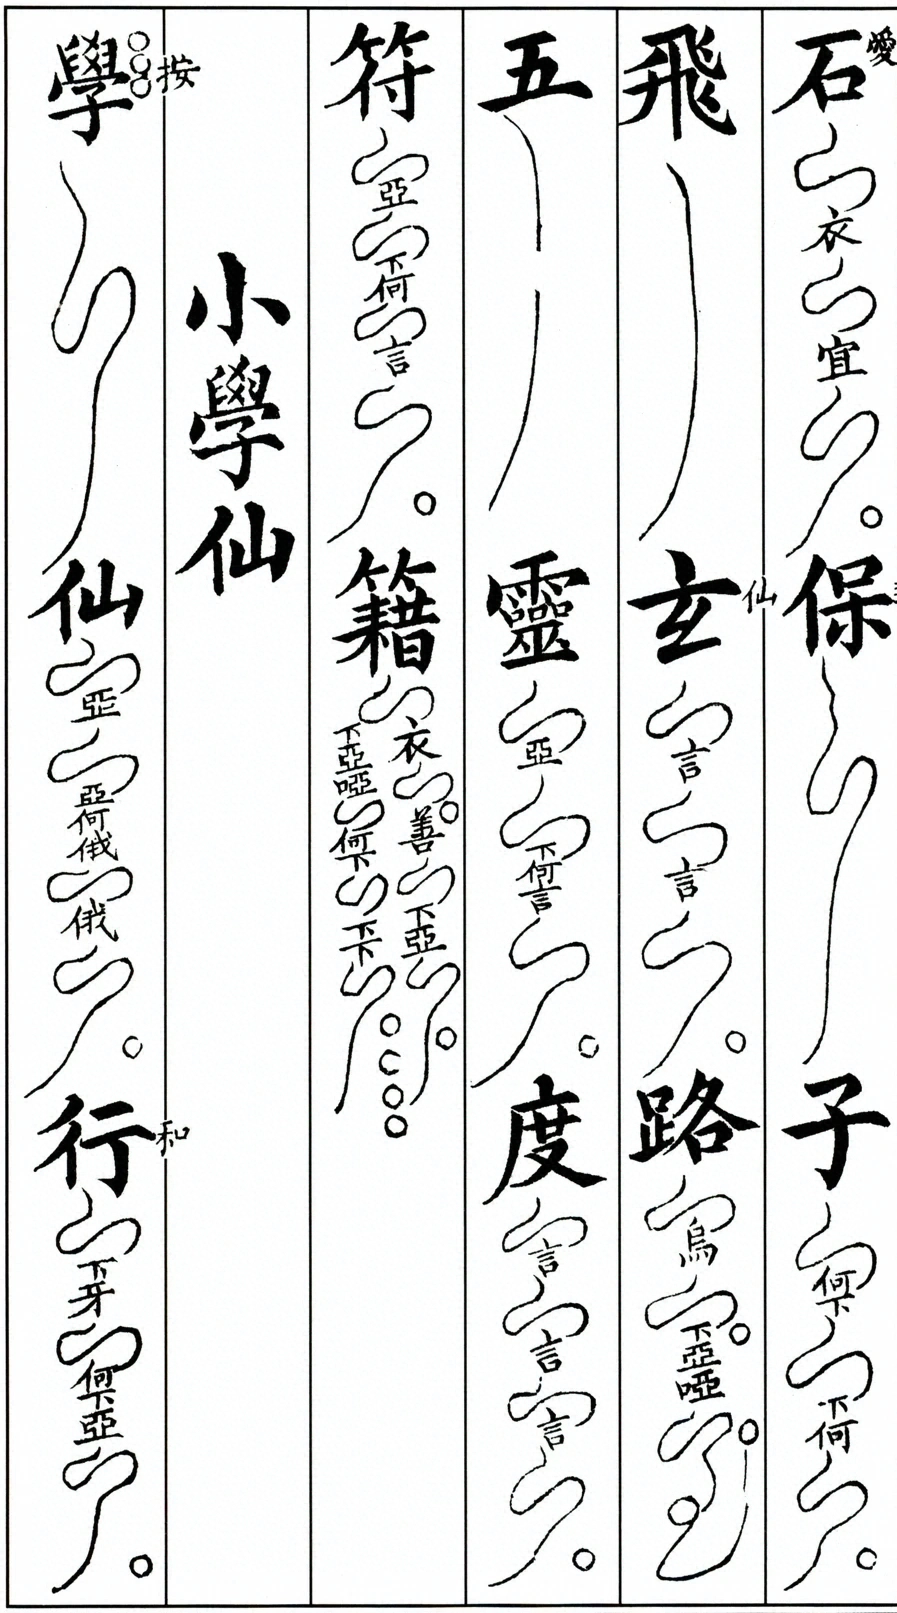 石愛衣宜保子何下下何
飛玄仙言言路烏下亞啞
五靈亞下何言度言言言
符亞下何言籍衣善下亞下亞啞何下下下
小學仙
學按仙亞亞何俄俄行和下牙何下亞